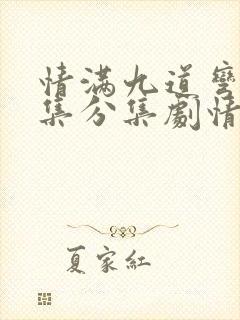 情满九道弯
集分集劇情
夏家紅